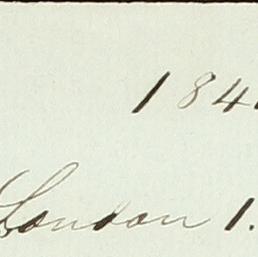 184
London 1.